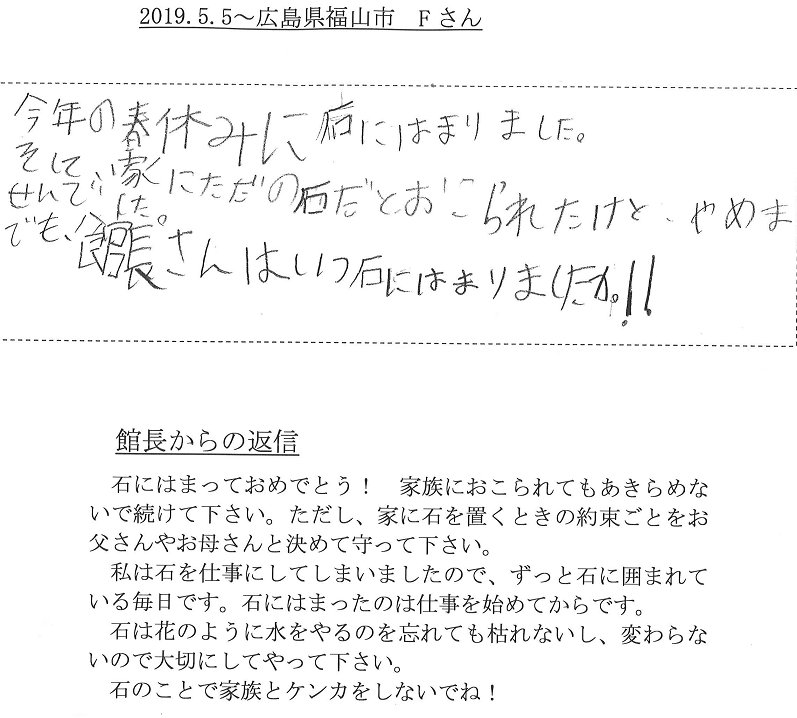 2019.5.5～広島県福山市　Fさん
今年の春休みに石にはまりました。
そして、家にただの石だとおこられたけど、やめま
せんでした。
でも、館長さんはいつ石にはまりましたか。!!
館長からの返信
石にはまっておめでとう！　家族におこられてもあきらめな
いで続けて下さい。ただし、家に石を置くときの約束ごとをお
父さんやお母さんと決めて守って下さい。
私は石を仕事にしてしまいましたので、ずっと石に囲まれて
いる毎日です。石にはまったのは仕事を始めてからです。
石は花のように水をやるのを忘れても枯れないし、変わらな
いので大切にしてやって下さい。
石のことで家族とケンカをしないでね！